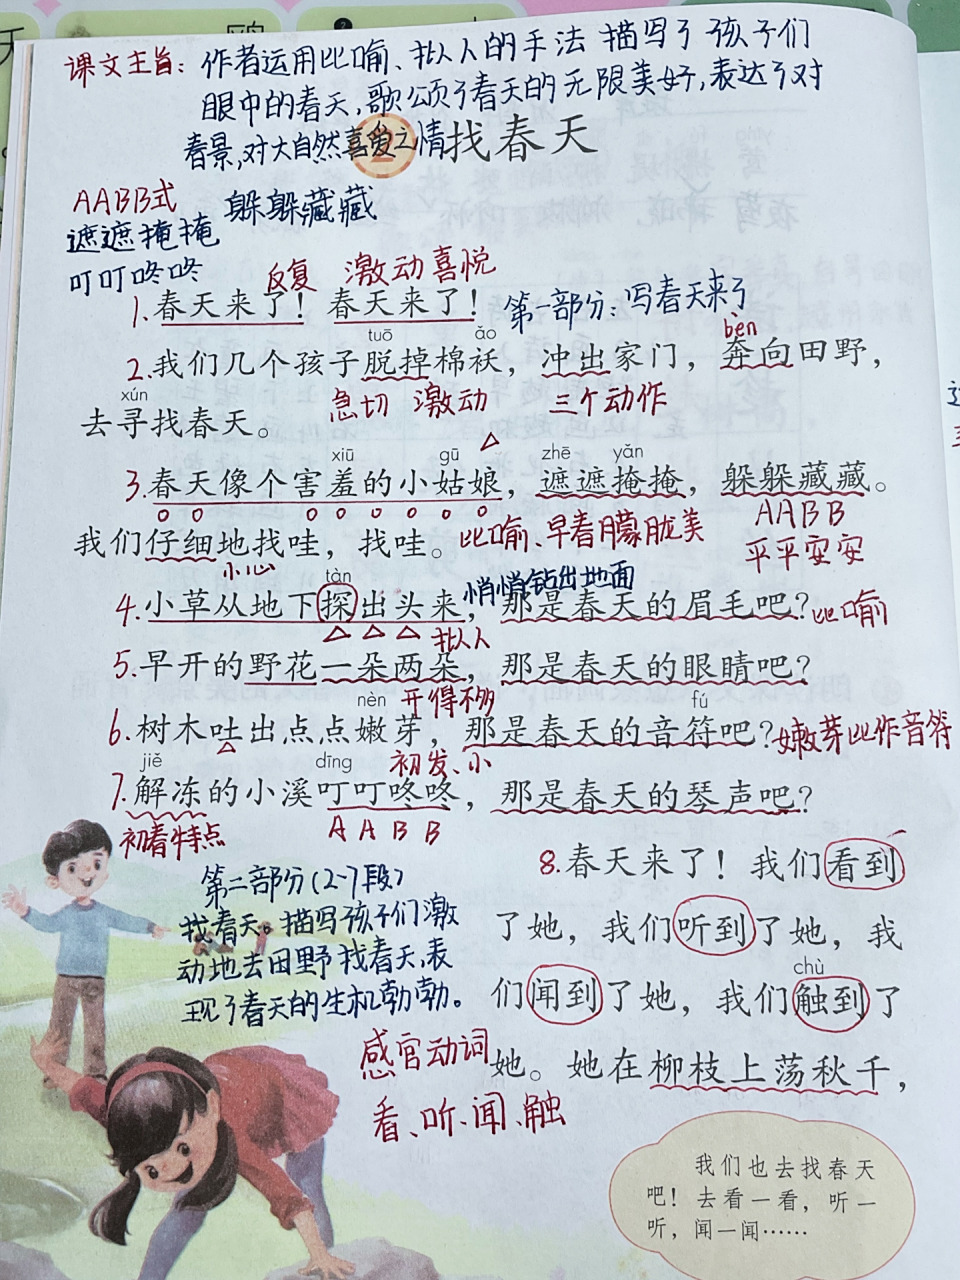 课文主旨：作者运用比喻、拟人的手法描写了孩子们
眼中的春天,歌颂了春天的无限美好,表达了对
春景,对大自然喜爱之情
2 找春天
AABB式 躲躲藏藏
遮遮掩掩
叮叮咚咚
反复 激动喜悦
1.春天来了！春天来了！第一部分：写春天来了
tuō ǎo bèn
2.我们几个孩子脱掉棉袄，冲出家门，奔向田野，
xún 急切 激动 三个动作
去寻找春天。
xiū gū zhē yǎn
3.春天像个害羞的小姑娘，遮遮掩掩，躲躲藏藏。
AABB
我们仔细地找哇，找哇。比喻、早春朦胧美
平平安安
小心 tàn 悄悄钻出地面
4.小草从地下探出头来，那是春天的眉毛吧？比喻
拟人
5.早开的野花一朵两朵，那是春天的眼睛吧？
nèn 开得不多 fú
6.树木吐出点点嫩芽，那是春天的音符吧？嫩芽比作音符
jiě dīng 初发、小
7.解冻的小溪叮叮咚咚，那是春天的琴声吧？
初春特点 A A B B
第二部分(2-7段)
找春天。描写孩子们激
动地去田野找春天,表
现了春天的生机勃勃。
8.春天来了！我们看到
了她，我们听到了她，我
chù
们闻到了她，我们触到了
感官动词
她。她在柳枝上荡秋千，
看、听、闻、触
我们也去找春天
吧！去看一看，听一
听，闻一闻……